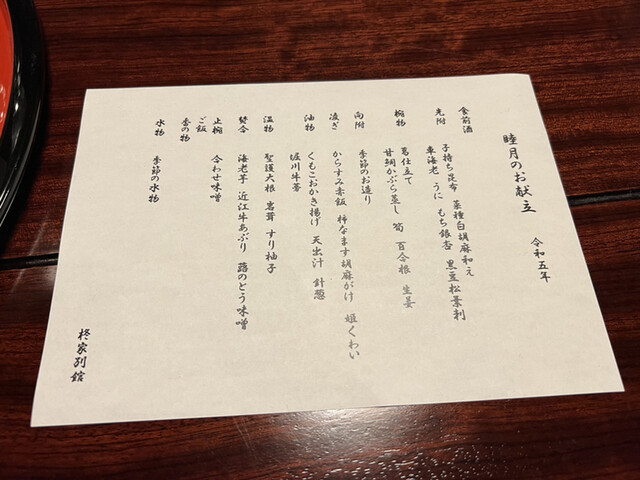 睦月のお献立　令和五年
食前酒
先附　子持ち昆布　菜種白胡麻和え
車海老　うに　もち銀杏　黒豆松葉刺
椀物　葛仕立て
甘鯛かぶら蒸し　筍　百合根　生姜
向附　季節のお造り
凌ぎ　からすみ赤飯　柿なます胡麻がけ　姫くわい
油物　くもこおかき揚げ　天出汁　針葱
堀川牛蒡
温物　聖護大根　岩茸　すり柚子
焚合　海老芋　近江牛あぶり　蕗のとう味噌
止椀　合わせ味噌
ご飯
香の物
水物　季節の水物
柊家別館